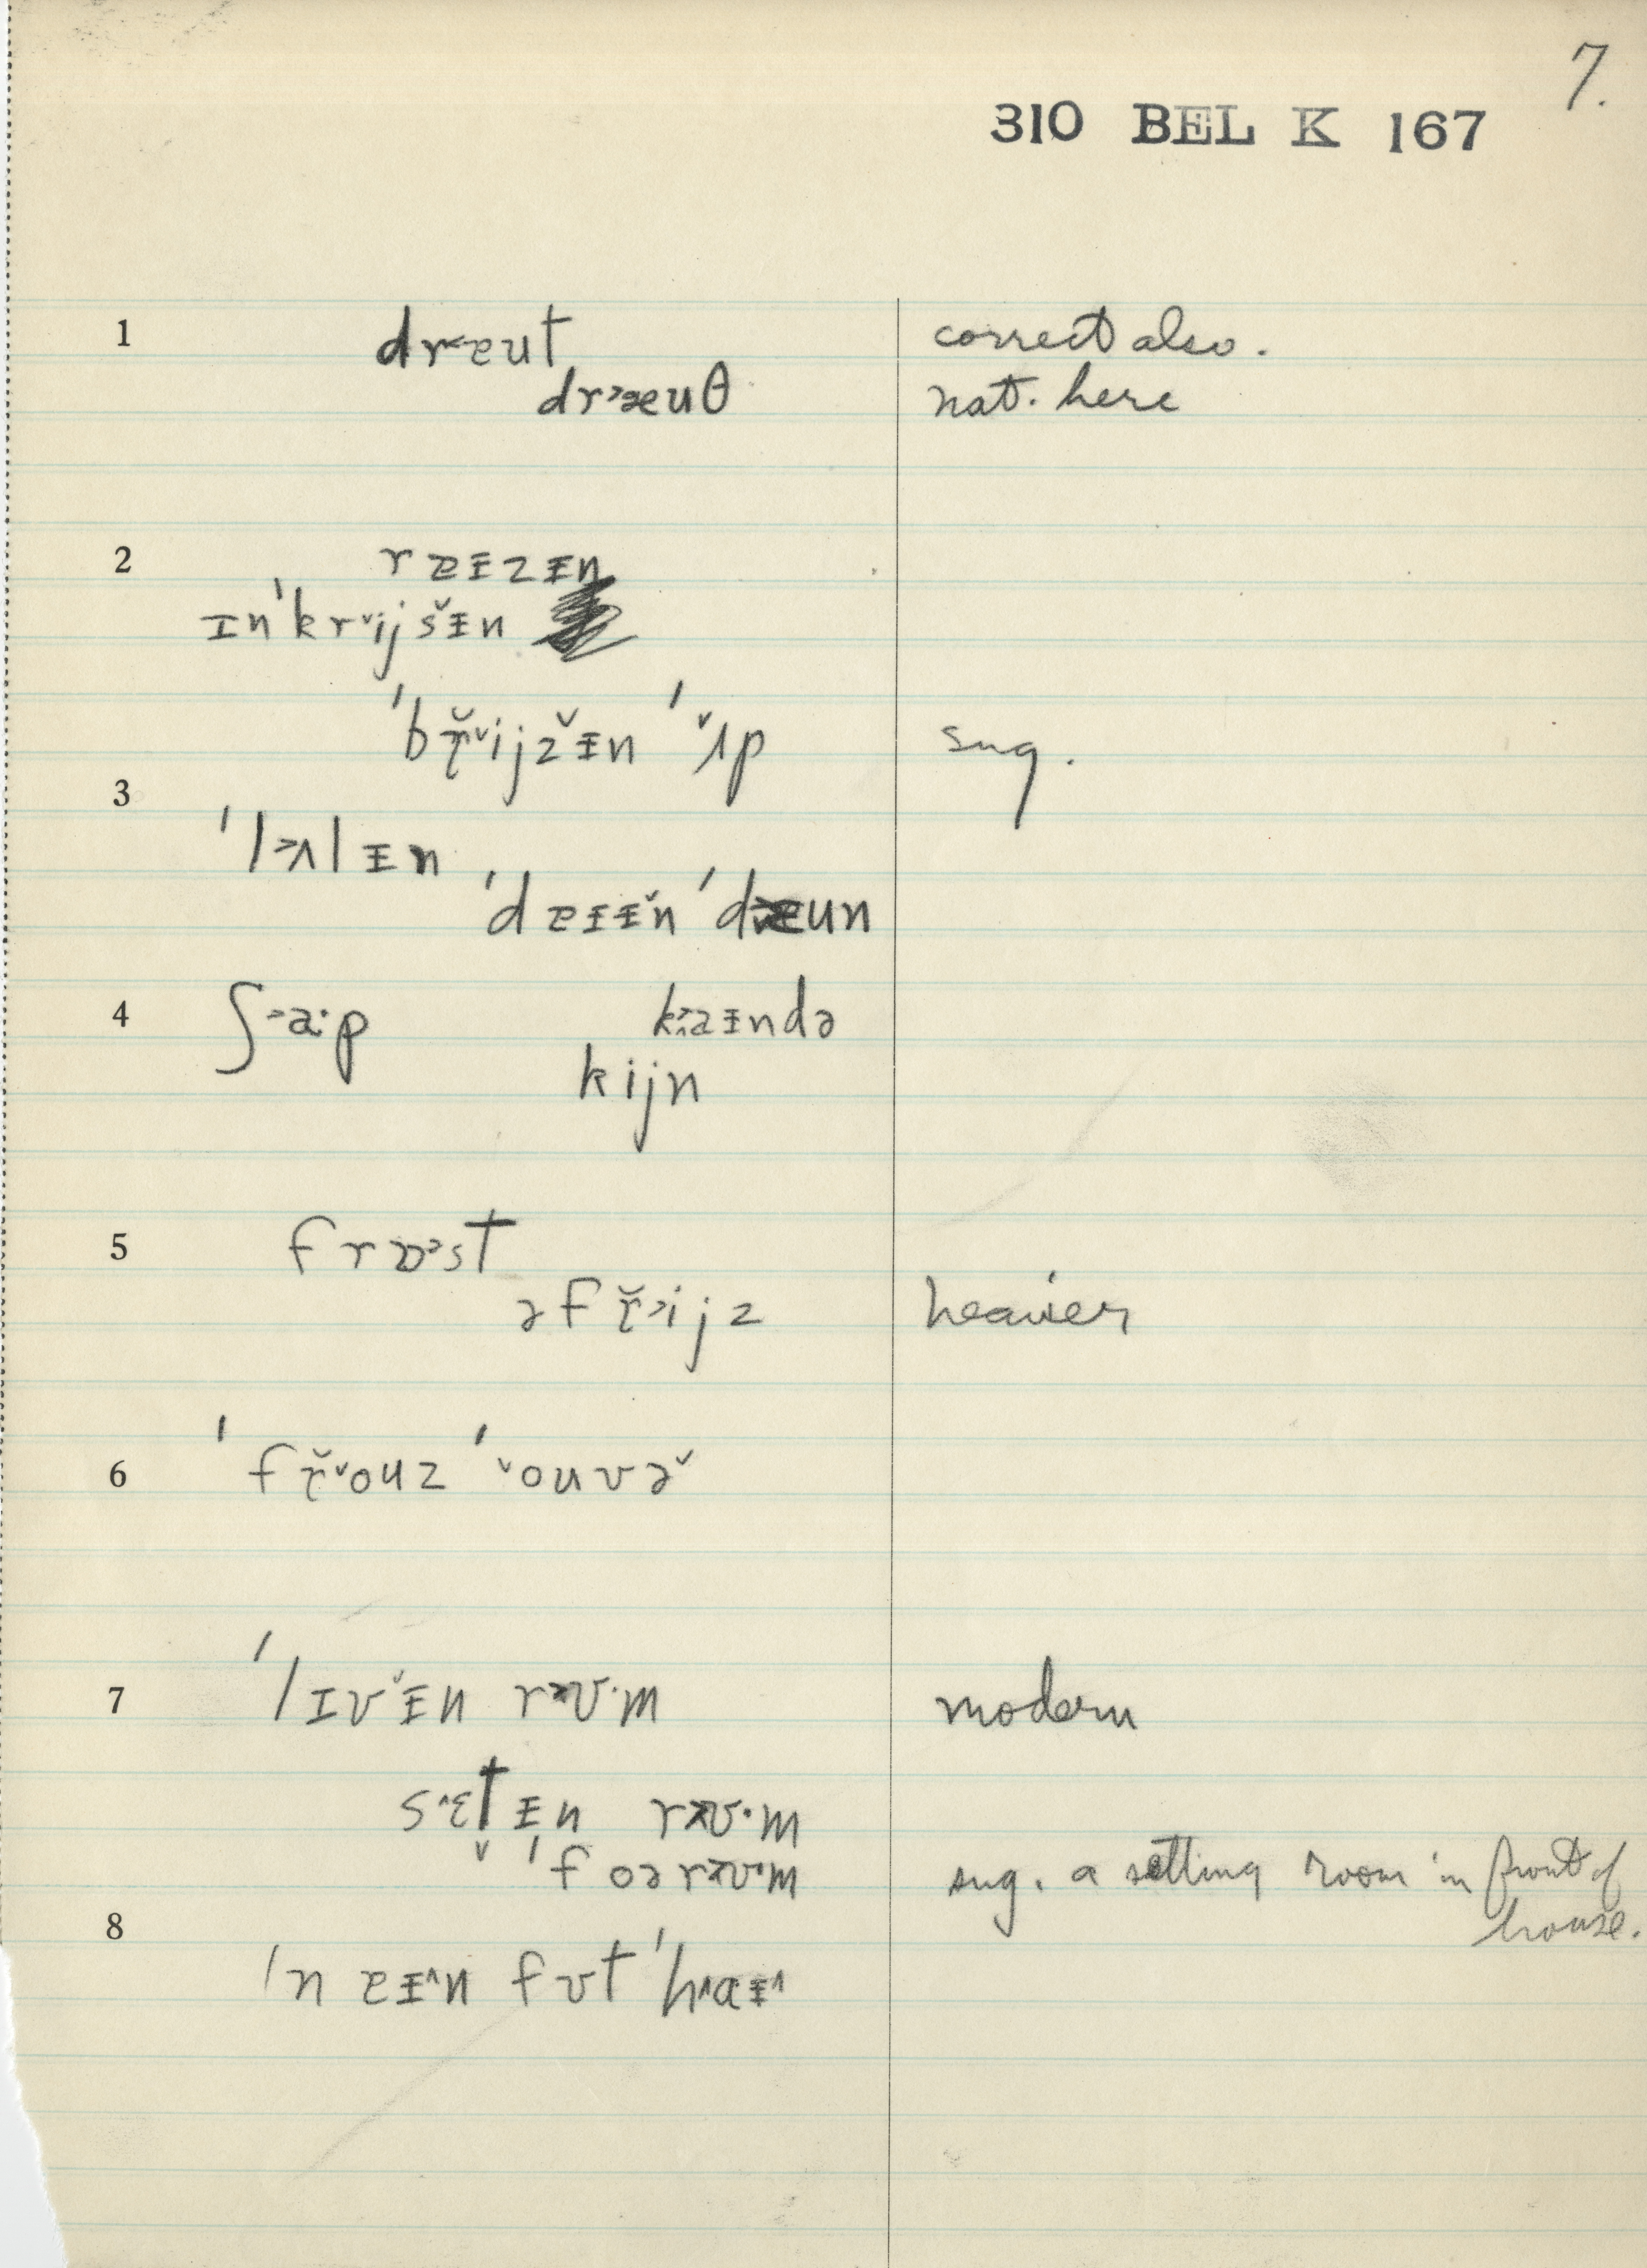 7.
310 BEL K 167
1 dr˂ɐut correct also.
dr˃æuθ nat. here
2 rɐᵻzᵻn
ɪn'krˇijšᵻn
'bř̜ˇijžᵻn 'ˇʌp sug.
3
'l˃ʌlᵻn
'dɐᵻᵻˇn 'd˃ɐun
4 ʃ˃a·p k˃aᵻndə
kijn
5 frɒ˃st
əfř̜˃ijz heavier
6 'fř̜ˇouz 'ˇouvəˇ
7 'lɪvˇᵻn r˃ʊ·m modern
s˄ɛt̬ᵻn r˃ʊ·m
'foər˃ʊ·m sug. a setting room in front of
house.
8
'nɐᵻ˄n fʊt 'h˄aᵻ˄